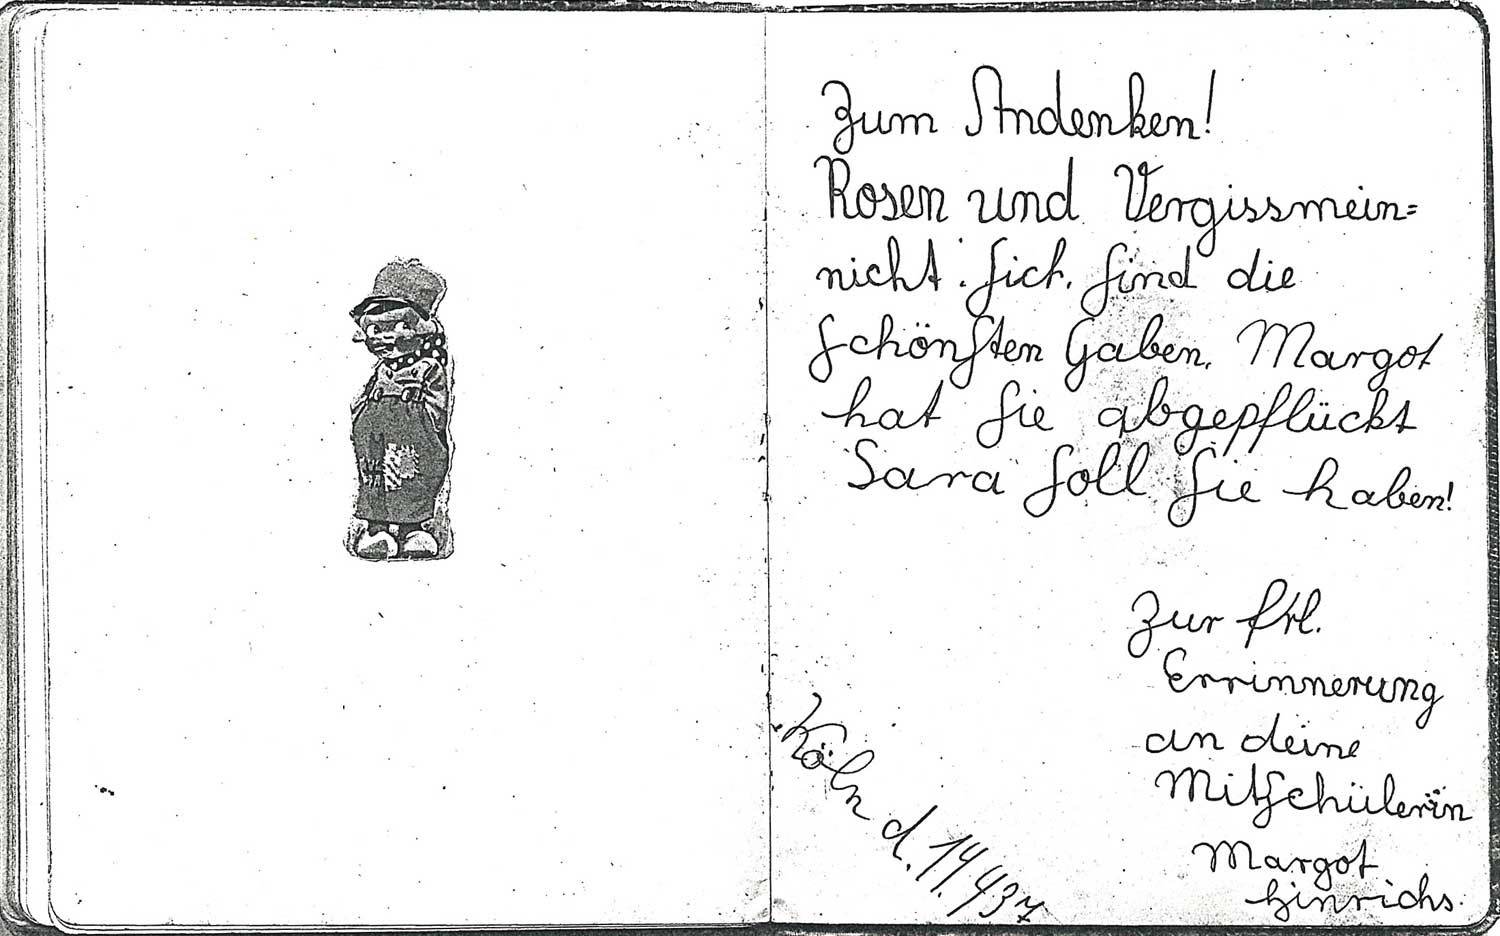 Zum Andenken!
Rosen und Vergissmein=
nicht. sich. sind die
schönsten Gaben. Margot
hat sie abgepflückt
Sara soll sie haben!
Zur frl.
Errinnerung
an deine
Mitschülerin
Margot
Hinrichs.
Köln d. 14.4.37